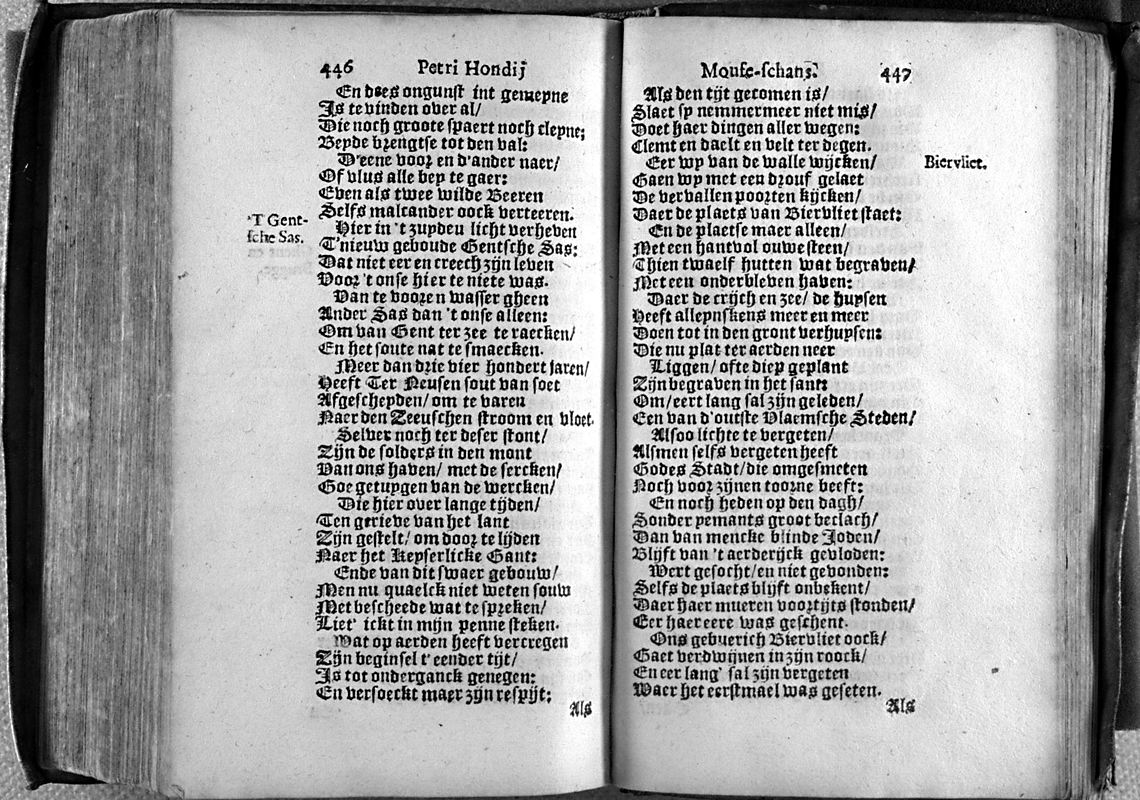 446 Petri Hondij
En dees ongunst int gemeyne
Is te vinden over al/
Die noch groote spaert noch cleyne;
Beyde brengtse tot den val:
D'eene voor en d'ander naer/
Of vlus alle bey te gaer:
Even als twee wilde Beeren
Selfs malcander oock verteeren.
'T Gent-
sche Sas.
Hier in 't zuyden licht verheven
T'nieuw geboude Gentsche Sas:
Dat niet eer en creech zijn leven
Voor 't onse hier te niete was.
Van te vooren wasser gheen
Ander Sas dan 't onse alleen:
Om van Gent ter zee te raecken/
En het soute nat te smaecken.
Meer dan drie vier hondert jaren/
Heeft Ter Neusen sout van soet
Afgescheyden/ om te varen
Naer den Zeeuschen stroom en vloet.
Selver noch ter deser stont/
Zijn de solders in den mont
Van ons haven/ met de sercken/
Goe getuygen van de wercken/
Die hier over lange tijden/
Ten gerieve van het lant
Zijn gestelt/ om door te lijden
Naer het Keyserlicke Gant:
Ende van dit swaer gebouw/
Men nu quaelck niet weten souw
Met bescheede wat te spreken/
Liet' ickt in mijn penne steken.
Wat op aerden heeft vercregen
Zijn beginsel t'eender tijt/
Is tot onderganck genegen:
En versoeckt maer zijn respijt;
Als
Mouse-schans. 447
Als den tijt gecomen is/
Slaet sy nemmermeer niet mis/
Doet haer dingen aller wegen:
Clemt en daelt en velt ter degen.
Eer wy van de walle wijcken/
Biervliet.
Gaen wy met een drouf gelaet
De vervallen poorten kijcken/
Daer de plaets van Biervliet staet:
En de plaetse maer alleen/
Met een hantvol ouwe steen/
Thien twaelf hutten wat begraven/
Met een onderbleven haven:
Daer de crijch en zee/ de huysen
Heeft alleynskens meer en meer
Doen tot in den gront verhuysen:
Die nu plat ter aerden neer
Liggen/ ofte diep geplant
Zijn begraven in het sant:
Om/ eert lang sal zijn geleden/
Een van d'outste Vlaemsche Steden/
Alsoo lichte te vergeten/
Alsmen selfs vergeten heeft
Godes Stadt/ die omgesmeten
Noch voor zijnen toorne beeft:
En noch heden op den dagh/
Sonder yemants groot beclach/
Dan van mencke blinde Joden/
Blijft van 't aerderijck gevloden:
Wert gesocht/ en niet gevonden:
Selfs de plaets blijft onbekent/
Daer haer mueren voortijts stonden/
Eer haer eere was geschent.
Ons gebuerich Biervliet oock/
Gaet verdwijnen in zijn roock/
En eer lang' sal zijn vergeten
Waer het eerstmael was geseten.
Als